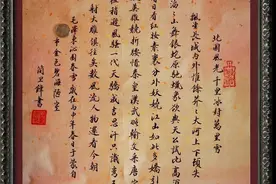 北國風光千里冰封萬里雪
飄望長城內外惟餘莽莽大河上下頓失
滔滔山舞銀蛇原馳蠟象欲與天公試比高須晴
日看紅裝素裹分外妖嬈江山如此多嬌引
無數英雄競折腰惜秦皇漢武略輸文采唐宗
宋祖稍遜風騷一代天驕成吉思汗只識彎弓
射大雕俱往矣數風流人物還看今朝
毛澤東沁園春雪歲在丙申年春日于蒙自
市金色碧海陋室
書